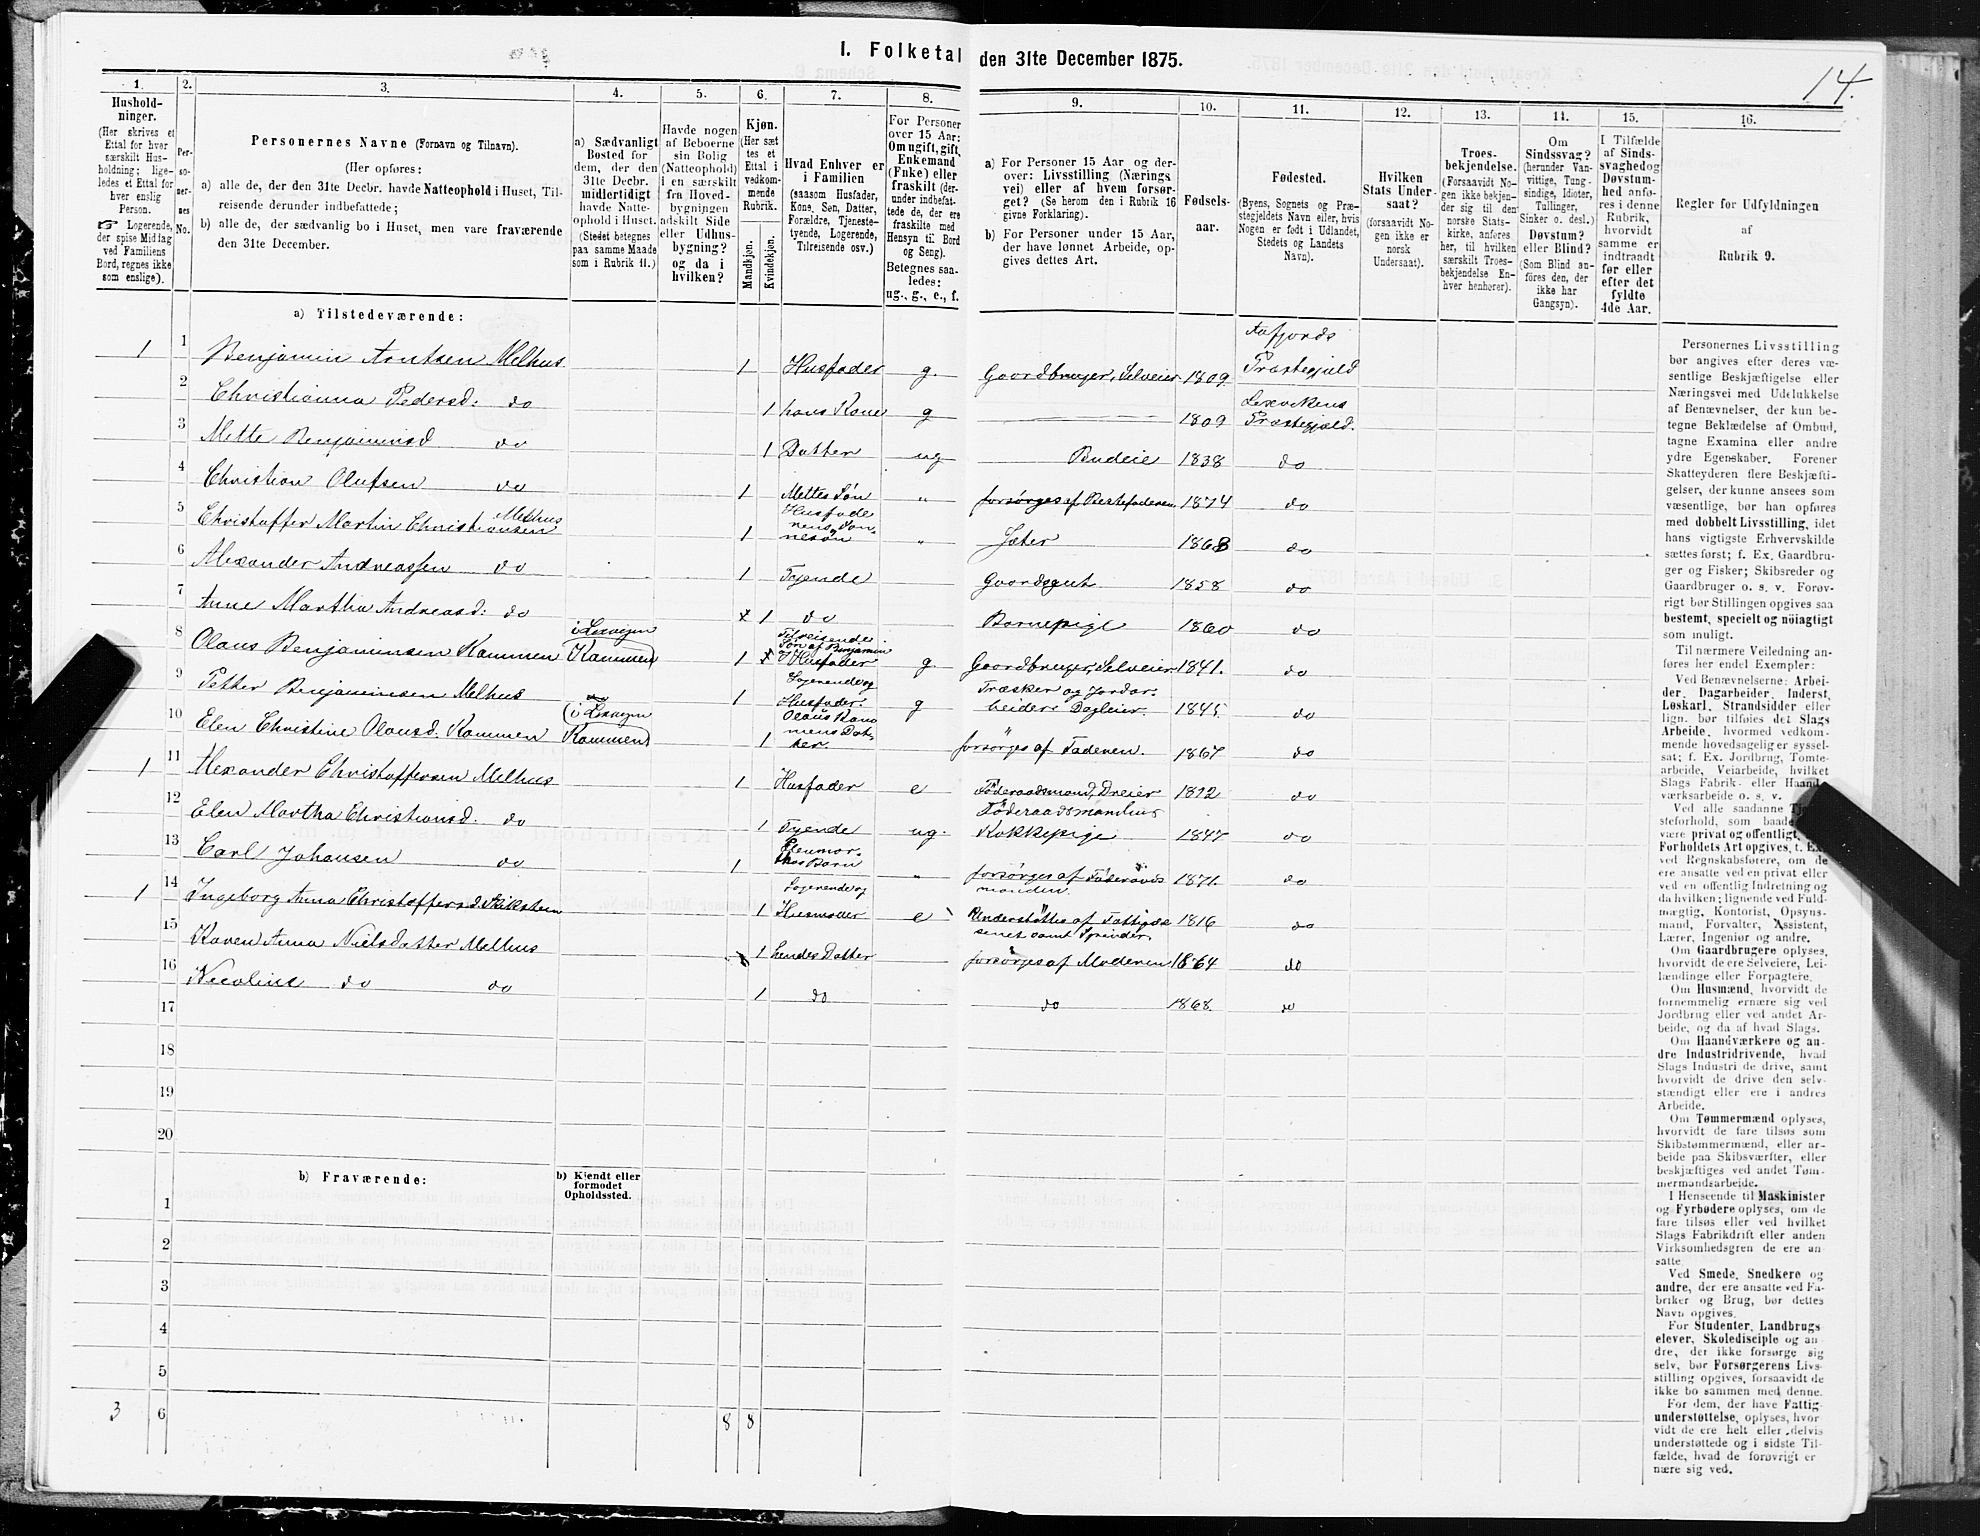 I. Folketal den 31te December 1875.
14.
1. 2. 3. 4. 5. 6. 7. 8. 9. 10. 11. 12. 13. 14. 15. 16.
Hushold-
ninger.
(Her skrives et
Ettal for hver
særskilt Hus-
holdning; lige-
ledes et Ettal for
hver enslig
Person.
☞ Logerende,
der spise Middag
ved Familiens
Bord, regnes ikke
som enslige).
Per-
so-
ner-
nes
No.
Personernes Navne (Fornavn og Tilnavn).
(Her opføres:
a) alle de, der den 31te Decbr. havde Natteophold i Huset, Til-
reisende derunder indbefattede;
b) alle de, der sædvanlig bo i Huset, men vare fraværende
den 31te December.
a) Sædvanligt
Bosted for
dem, der den
31te Decbr.
midlertidigt
havde Natte-
ophold i Huset.
(Stedet betegnes
paa samme Maade
som i Rubrik 11.)
Havde nogen
af Beboerne
sin Bolig
(Natteophold)
i en særskilt
fra Hoved-
bygningen
adskilt Side
eller Udhus-
bygning?
og da i
hvilken?
Kjøn.
(Her sæt
tes et
Ettal i
vedkom-
mende
Rubrik.
Mandkjøn.
Kvindekjøn.
Hvad Enhver er
i Familien
(saasom Husfader,
Kone, Søn, Datter,
Forældre, Tjeneste-
tyende, Logerende,
Tilreisende osv.)
For Personer
over 15 Aar:
Om ugift, gift,
Enkemand
(Enke) eller
fraskilt (der-
under indbefat-
tede de, der ere
fraskilte med
Hensyn til Bord
og Seng).
Betegnes saa-
ledes:
ug., g., e., f.
a) For Personer 15 Aar og der-
over: Livsstilling (Nærings
vei) eller af hvem forsør-
get? (Se herom den i Rubrik 16
givne Forklaring).
b) For Personer under 15 Aar,
der have lønnet Arbeide, op-
gives dettes Art.
Fødsels-
aar.
Fødested.
(Byens, Sognets og Præ-
stegjeldets Navn eller, hvis
Nogen er født i Udlandet,
Stedets og Landets
Navn).
Hvilken
Stats Under-
saat?
(forsaavidt No-
gen ikke er
norsk
Undersaat).
Troes-
bekjendelse.
(Forsaavidt No-
gen ikke bekjen-
der sig til den
norske Stats-
kirke, anføres
her, til hvilken
særskilt Troes-
bekjendelse En-
hver henhører).
Om
Sindssvag?
(herunder Van-
vittige, Tung-
sindige, Idioter,
Tullinger,
Sinker o. desl.)
Døvstum?
eller Blind?
(Som Blind an-
føres den, der
ikke har
Gangsyn).
I Tilfælde
af Sinds-
svaghed og
Døvstum-
hed anfø-
res i denne
Rubrik,
hvorvidt
samme er
indtraadt
før eller
efter det
fyldte
4de Aar.
Regler for Udfyldningen
af
Rubrik 9.
a) Tilstedeværende:
1 1 Benjamin Arntsen Melhus 1 Husfader g. Gaardbruger, Selveier 1809 Aafjords Præstegjeld
2 Christianna Pedersd: do 1 hans Kone g 1809 Lexvikens Præstegjeld.
3 Mette Benjaminsd do 1 Datter ug Budeie 1838 do
4 Christian Olufsen do 1 Mettes Søn " forsørges af Bestefaderen 1874 do
5 Christoffer Martin Christiansen Melhus 1 Husfaderens Sønnesøn " Gjeter 1868 do
6 Alexander Andreassen do 1 Tyende Gaardsgut 1858 do
7 Anne Martha Andreasd: do x 1 do Barnepige 1860 do
8 Olaus Benjaminsen Kammen (i Lexvigen Kammen) 1 x Tilreisende Søn af Benjamin Husfader g. Gaardbruger, Selveier 1841. do
9 Petter Benjaminsen Melhus do 1 Logerende og Husfader g Træsker og Jordarbeider Dagleier. 1845 do
10 Elen Christine Olausd. Kammen (i Lexvigen Kammen) 1 Olaus Kammens Datter. forsørges af Faderen. 1867 do
1 11 Alexander Christoffersen Melhus 1 Husfader e Føderaadsmand, Dreier 1812 do
12 Elen Martha Christiansd. do 1 Tyende ug. Føderaadsmandens Kokkepige 1847 do
13 Carl Johansen do 1 Elenmarthas Barn " forsørges af Føderaadsmanden. 1871. do
1 14 Ingeborg Anna Christoffersd. 1 Logerende og Husmoder e Understøttes af Fattigvæsenet samt Spinder. 1816 do
15 Karen Anna Nielsdatter Melhus 1 hendes Datter forsørges af Moderen 1864 do
16 Nicoline do do 1 do do 1868. do
17
18
19
20
b) Fraværende:
b) Kjendt eller
formodet
Opholdssted.
1
2
3
4
5
3 6 8 8
Personernes Livsstilling
bør angives efter deres væ-
sentlige Beskjæftigelse eller
Næringsvei med Udelukkelse
af Benævnelser, der kun be-
tegne Beklædelse af Ombud,
tagne Examina eller andre
ydre Egenskaber. Forener
Skatteyderen flere Beskjæfti-
gelser, der kunne ansees som
væsentlige, bør han opføres
med dobbelt Livsstilling, idet
hans vigtigste Erhvervskilde
sættes først; f. Ex. Gaardbru-
ger og Fisker; Skibsreder og
Gaardbruger o. s. v. Forøv-
rigt bør Stillingen opgives saa
bestemt, specielt og nøiagtigt
som muligt.
Til nærmere Veiledning an-
føres her endel Exempler:
Ved Benævnelserne: Arbei-
der, Dagarbeider, Inderst,
Løskarl, Strandsidder eller
lign. bør tilføies det Slags
Arbeide, hvormed vedkom-
mende hovedsagelig er syssel-
sat; f. Ex. Jordbrug, Tomte-
arbeide, Veiarbeide, hvilket
Slags Fabrik- eller Haand-
værksarbeide o. s. v.
Ved alle saadanne Tje-
steforhold, som baade
være privat og offentligt,
Forholdets Art opgives, t. Ex.
ved Regnskabsførere, om de
ere ansatte ved en privat eller
ved en offentlig Indretning og
da hvilken; lignende ved Fuld-
mægtig, Kontorist, Opsyns-
mand, Forvalter, Assistent,
Lærer, Ingeniør og andre.
Om Gaardbrugere oplyses,
hvorvidt de ere Selveiere, Lei-
lændinge eller Forpagtere.
Om Husmænd, hvorvidt de
fornemmelig ernære sig ved
Jordbrug eller ved andet Ar-
beide, og da af hvad Slags.
Om Haandværkere og an-
dre Industridrivende, hvad
Slags Industri de drive, samt
hvorvidt de drive den selv-
stændigt eller ere i andres
Arbeide.
Om Tømmermænd oplyses,
hvorvidt de fare tilsøs som
Skibstømmermænd, eller ar-
beide paa Skibsværfter, eller
beskjæftiges ved andet Tøm-
mermandsarbeide.
I Henseende til Maskinister
og Fyrbødere oplyses, om de
fare tilsøs eller ved hvilket
Slags Fabrikdrift eller anden
Virksomhedsgren de ere an-
satte.
Ved Smede, Snedkere og
andre, der ere ansatte ved Fa-
briker og Brug, bør dettes
Navn opgives.
For Studenter, Landbrugs
elever, Skoledisciple og an-
dre, der ikke forsørge sig
selv, bør Forsørgerens Livs-
stilling opgives, forsaavidt de
ikke bo sammen med denne.
For dem, der have Fattig-
understøttelse, oplyses, hvor
vidt de ere helt eller delvis
understøttede og i sidste Til-
fælde, hvad de forøvrigt er
nære sig ved.